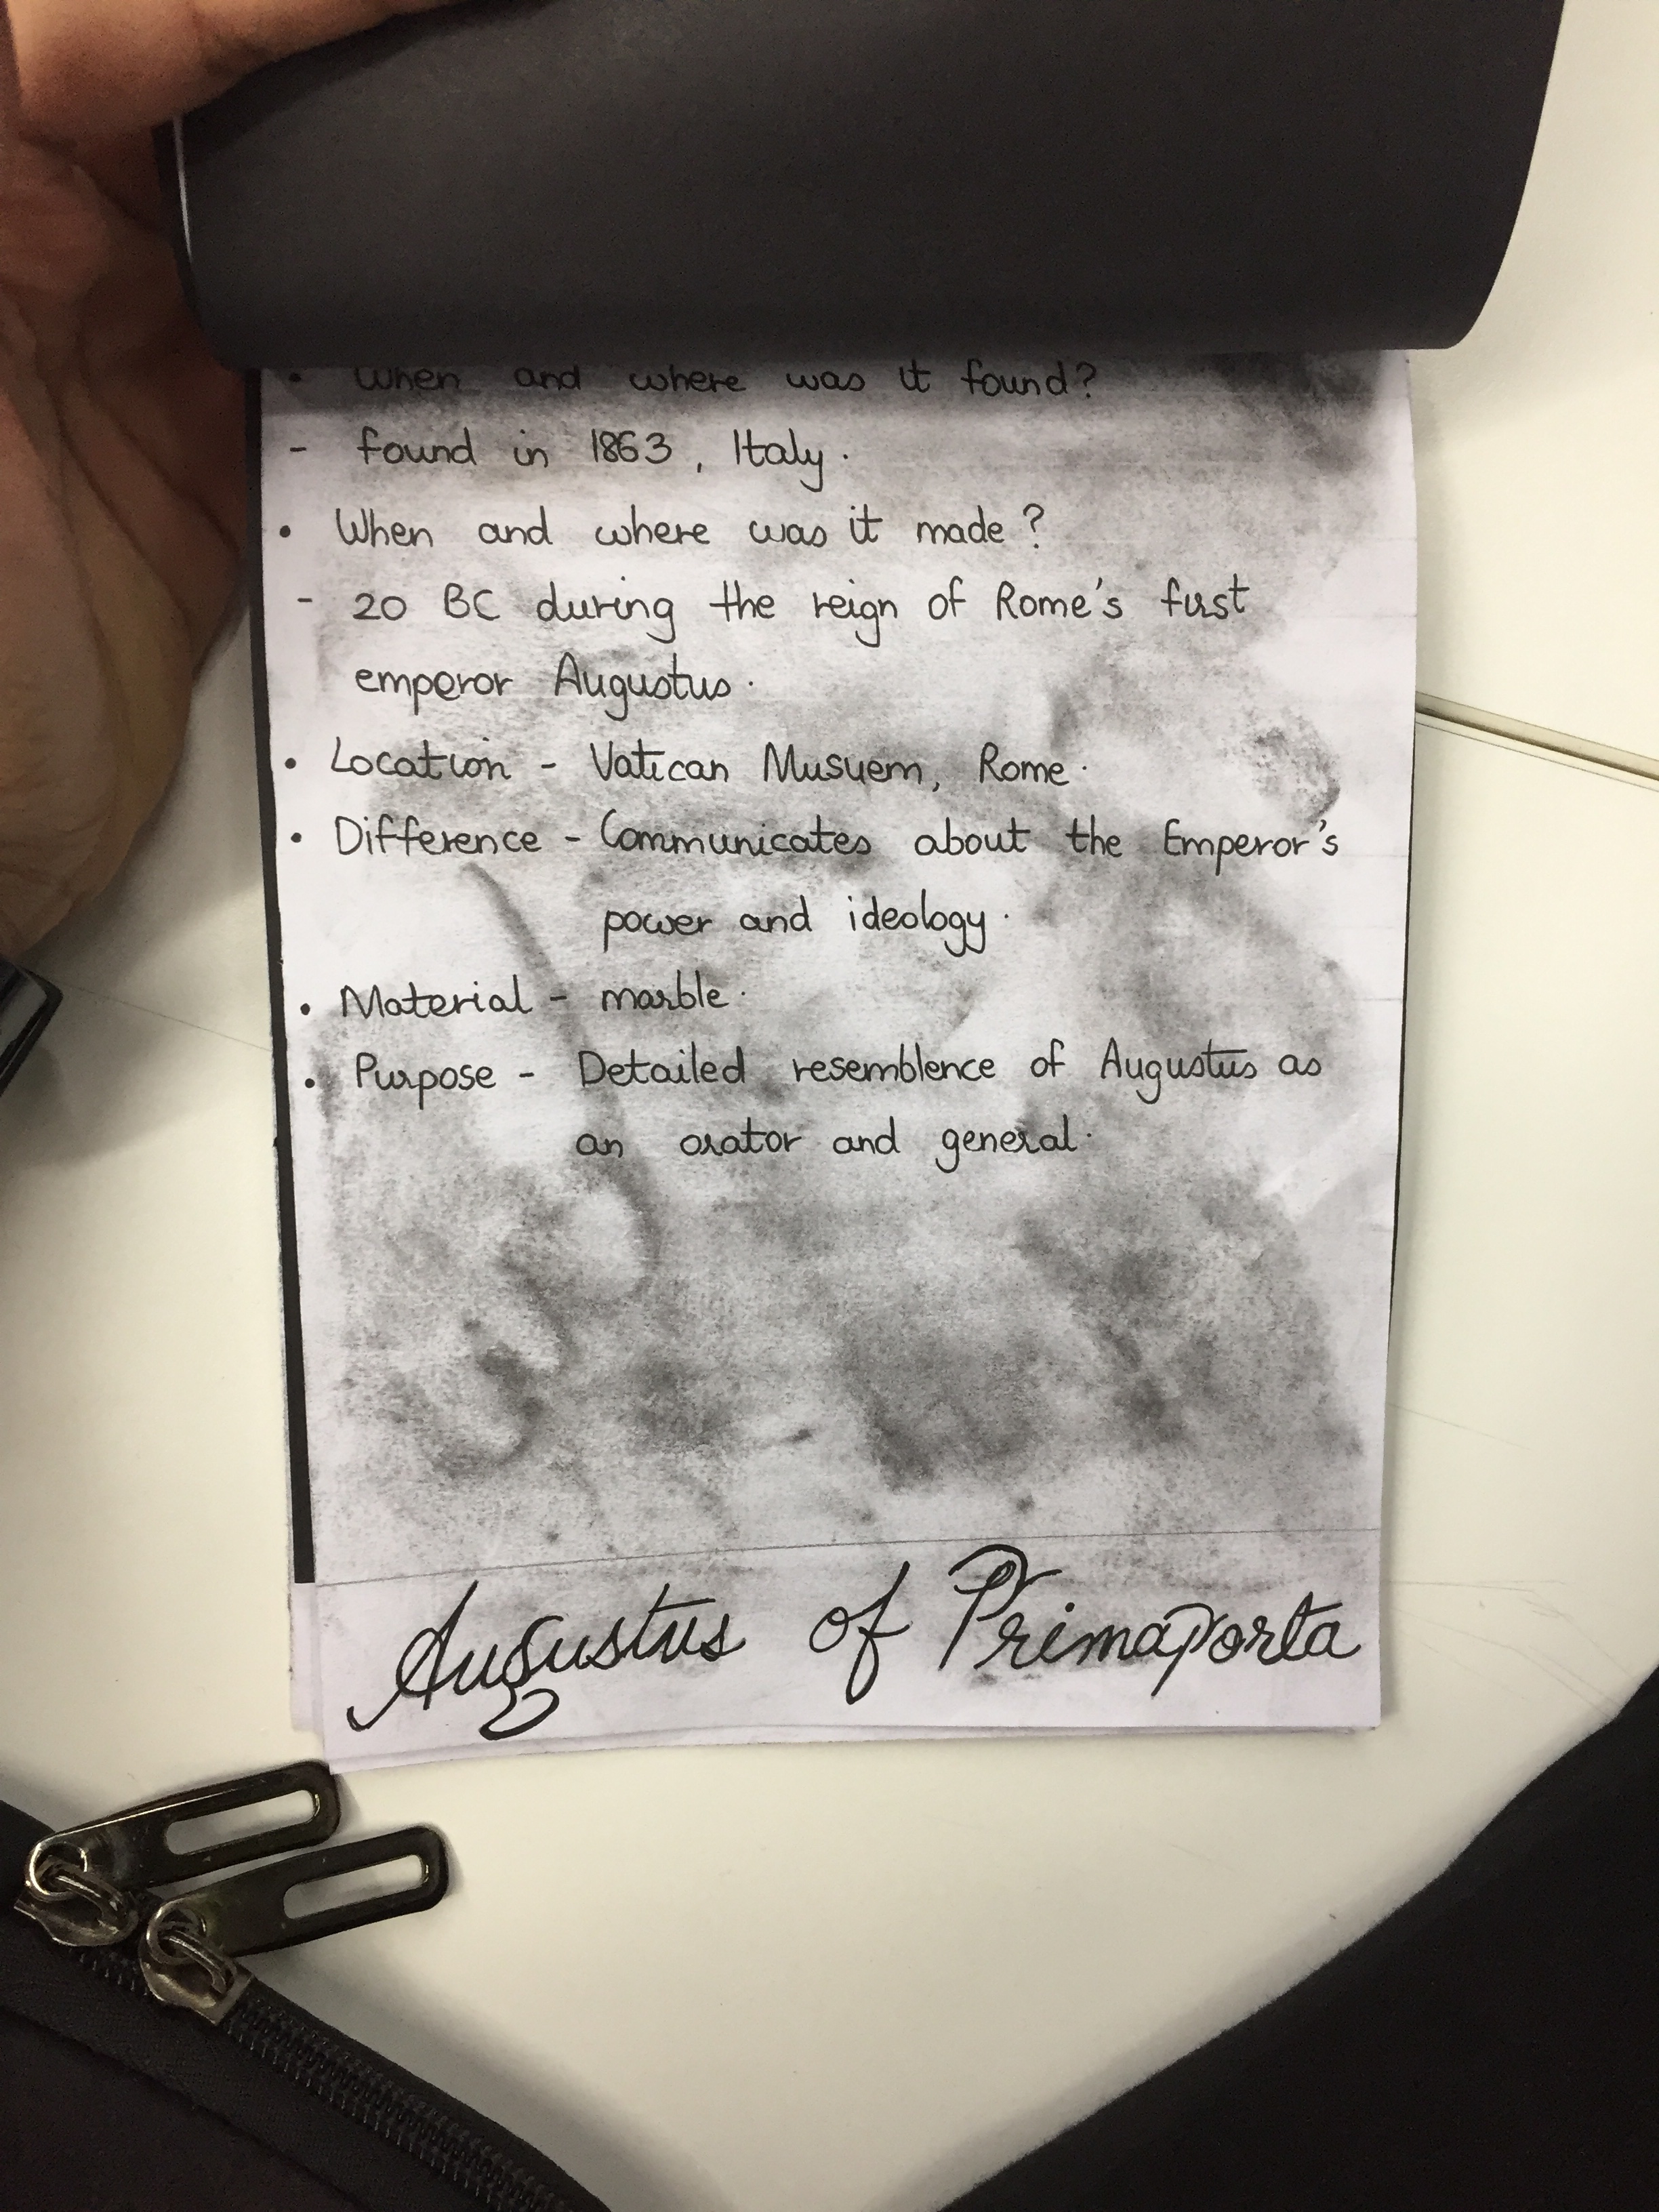 • When and where was it found?
- found in 1863, Italy.
• When and where was it made?
- 20 BC during the reign of Rome's first
emperor Augustus.
• Location - Vatican Musuem, Rome.
• Difference - Communicates about the Emperor's
power and ideology.
• Material - marble.
• Purpose - Detailed resemblence of Augustus as
an orator and general.
Augustus of Primaporta